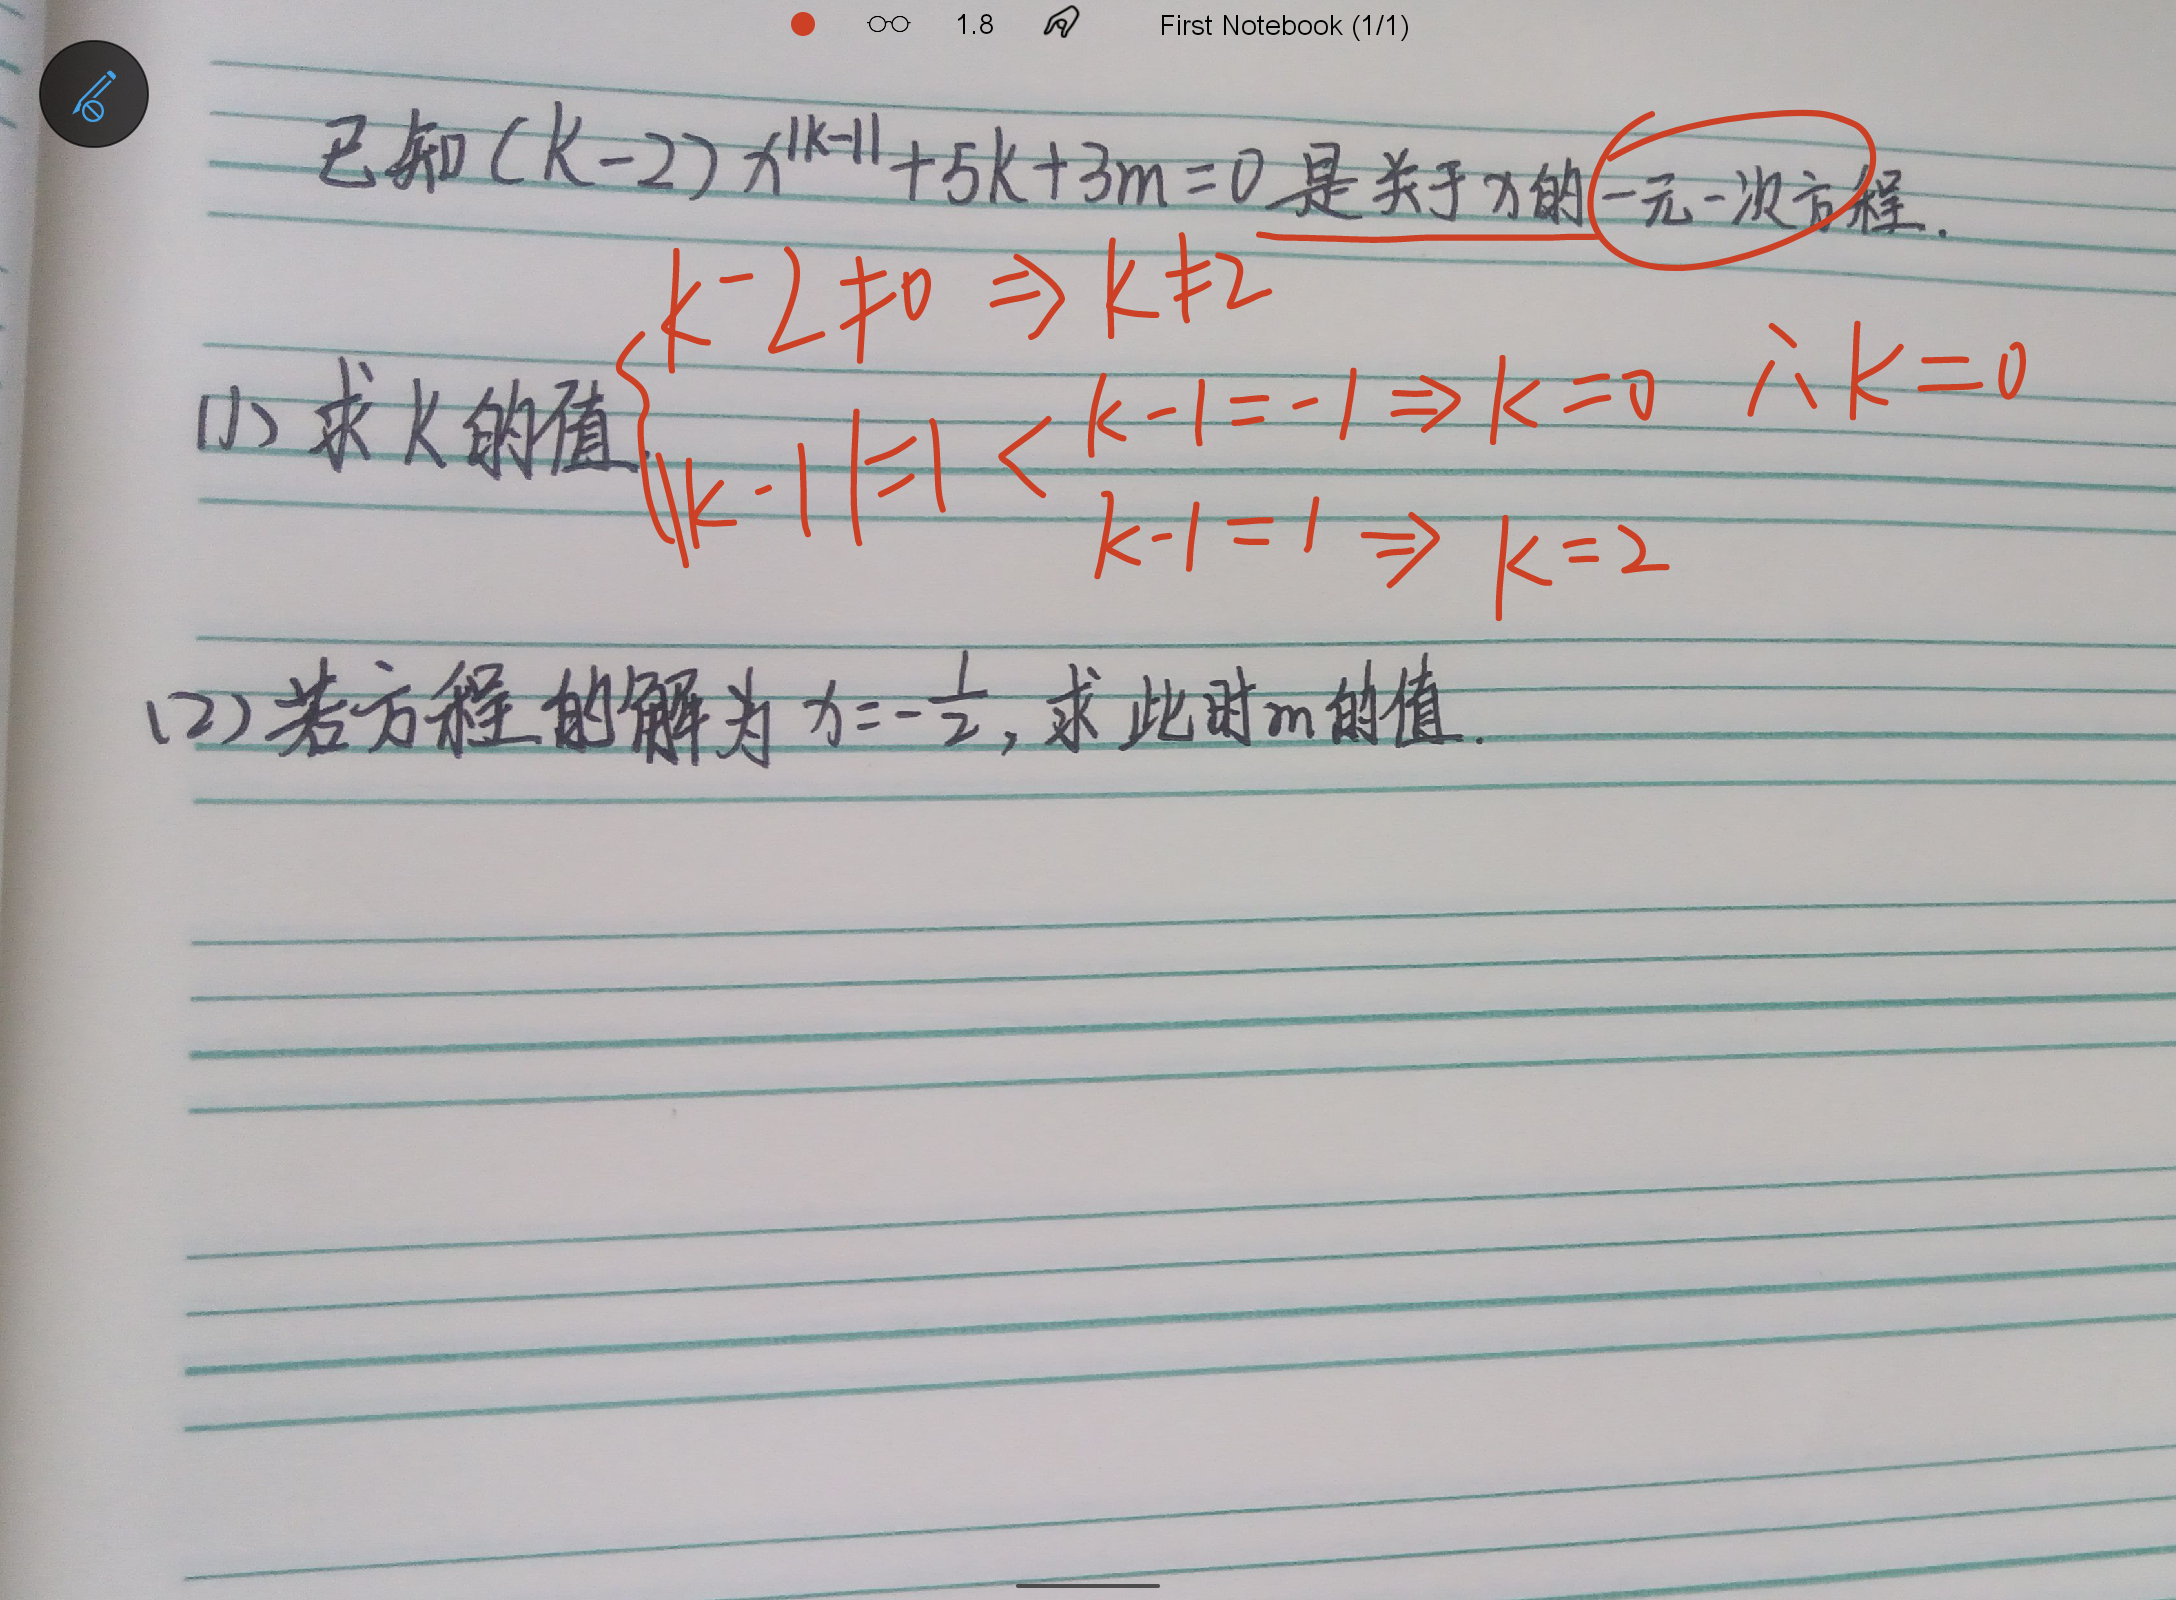 1.8 First Notebook (1/1)
已知(k-2)x^|k-1|+5k+3m=0是关于x的一元一次方程.
k-2≠0 ⇒ k≠2
(1) 求k的值.
|k-1|=1 < k-1=-1 ⇒ k=0 ∴k=0
k-1=1 ⇒ k=2
(2)若方程的解为x=-1/2,求此时m的值.